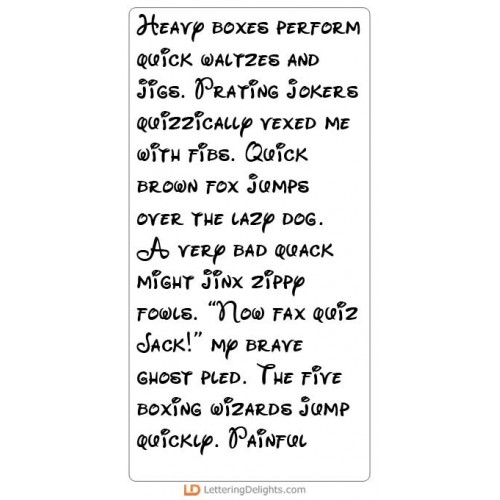 Heavy boxes perform
quick waltzes and
jigs. Prating jokers
quizzically vexed me
with fibs. Quick
brown fox jumps
over the lazy dog.
A very bad quack
might jinx zippy
fowls. “Now fax quiz
Jack!” my brave
ghost pled. The five
boxing wizards jump
quickly. Painful
LD LetteringDelights.com